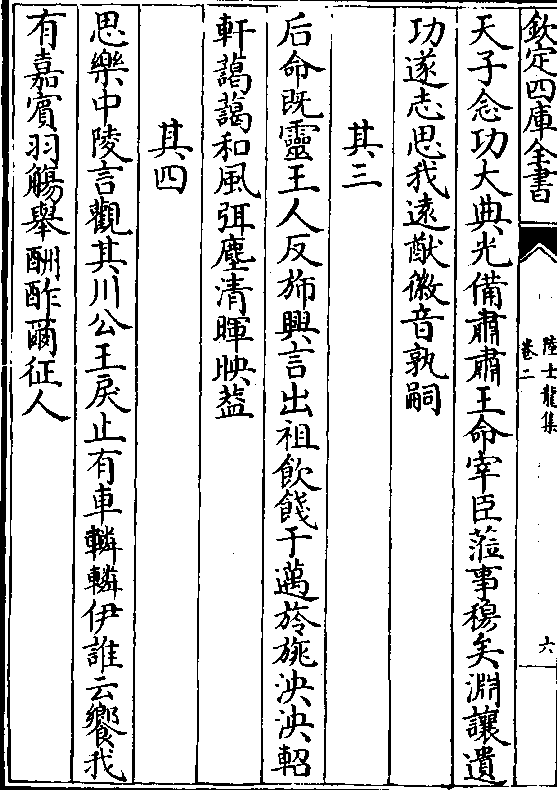 欽定四庫全書
陸士龍集
卷二
六
天子念功大典光備肅肅王命宰臣蒞事穆矣淵讓遺
功遂志思我遠猷徽音孰嗣
其三
后命既靈王人反斾興言出祖飲餞于邁旍旄泱泱軺
軒藹藹和風弭塵清暉映葢
其四
思樂中陵言觀其川公王戾止有車轔轔伊誰云饗我
有嘉賓羽觴舉酬酢爾征人